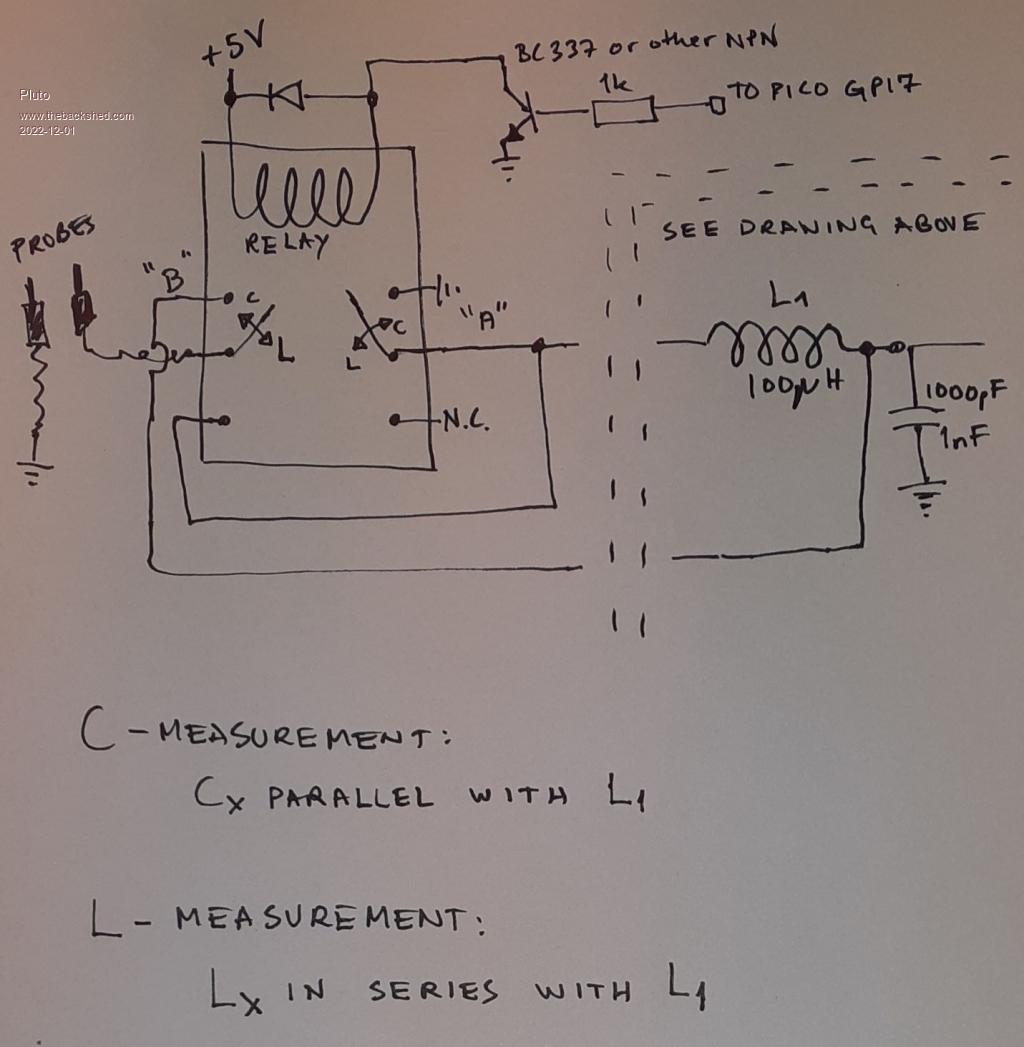 +5V
BC337 or other NPN
1k
TO PICO GP17
Pluto
www.thebackshed.com
2022-12-01
SEE DRAWING ABOVE
PROBES
RELAY
"B"
C
L
C
L
"A"
L1
100µH
1000pF
1nF
N.C.
C - MEASUREMENT:
Cx PARALLEL WITH L1
L - MEASUREMENT:
Lx IN SERIES WITH L1